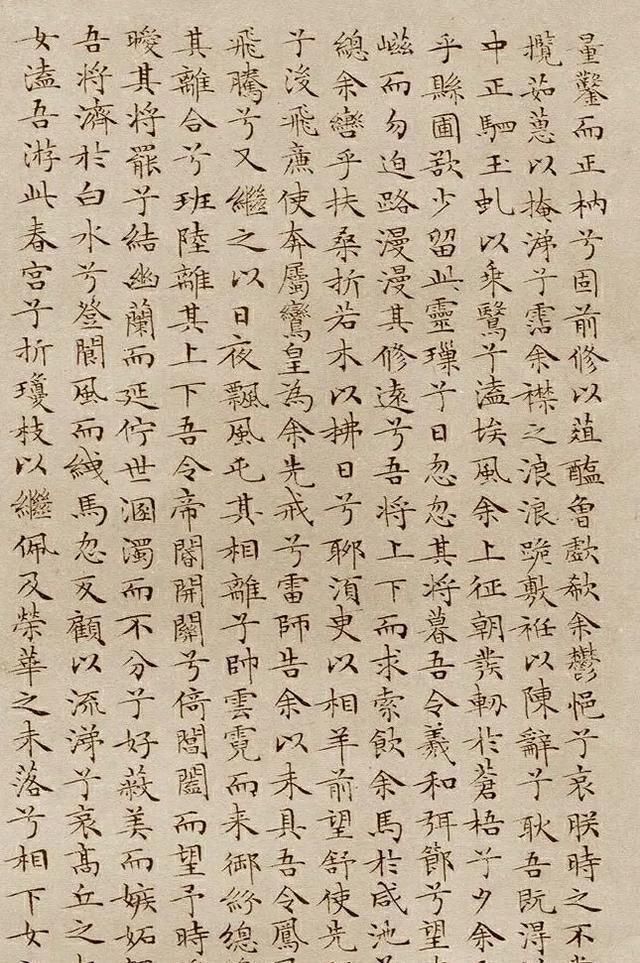 量鑿而正枘兮固前修以菹醢曾歔欷余鬱悒兮哀朕時之不當
攬茹蕙以掩涕兮霑余襟之浪浪跪敷衽以陳辭兮耿吾既得
中正駟玉虬以乘鷖兮溘埃風余上征朝發軔於蒼梧兮夕余
乎縣圃欲少留此靈璅兮日忽忽其將暮吾令羲和弭節兮望
嵫而勿迫路漫漫其修遠兮吾將上下而求索飲余馬於咸池
總余轡乎扶桑折若木以拂日兮聊須臾以相羊前望舒使先
兮後飛廉使奔屬鸞皇為余先戒兮雷師告余以未具吾令鳳
飛騰兮又繼之以日夜飄風屯其相離兮帥雲霓而来御紛總
其離合兮班陸離其上下吾令帝閽開關兮倚閶闔而望予時
曖其將罷兮結幽蘭而延佇世溷濁而不分兮好蔽美而嫉妒
吾將濟於白水兮登閬風而緤馬忽反顧以流涕兮哀高丘之
女溘吾游此春宮兮折瓊枝以繼佩及榮華之未落兮相下女